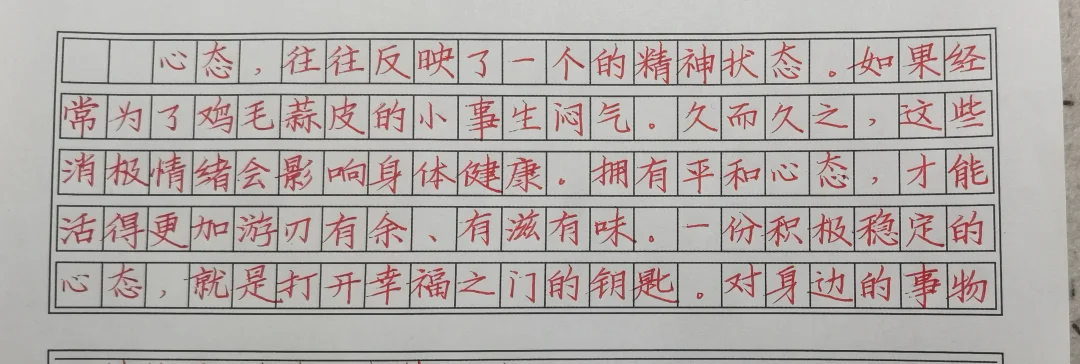 心态，往往反映了一个的精神状态。如果经
常为了鸡毛蒜皮的小事生闷气。久而久之，这些
消极情绪会影响身体健康。拥有平和心态，才能
活得更加游刃有余、有滋有味。一份积极稳定的
心态，就是打开幸福之门的钥匙。对身边的事物